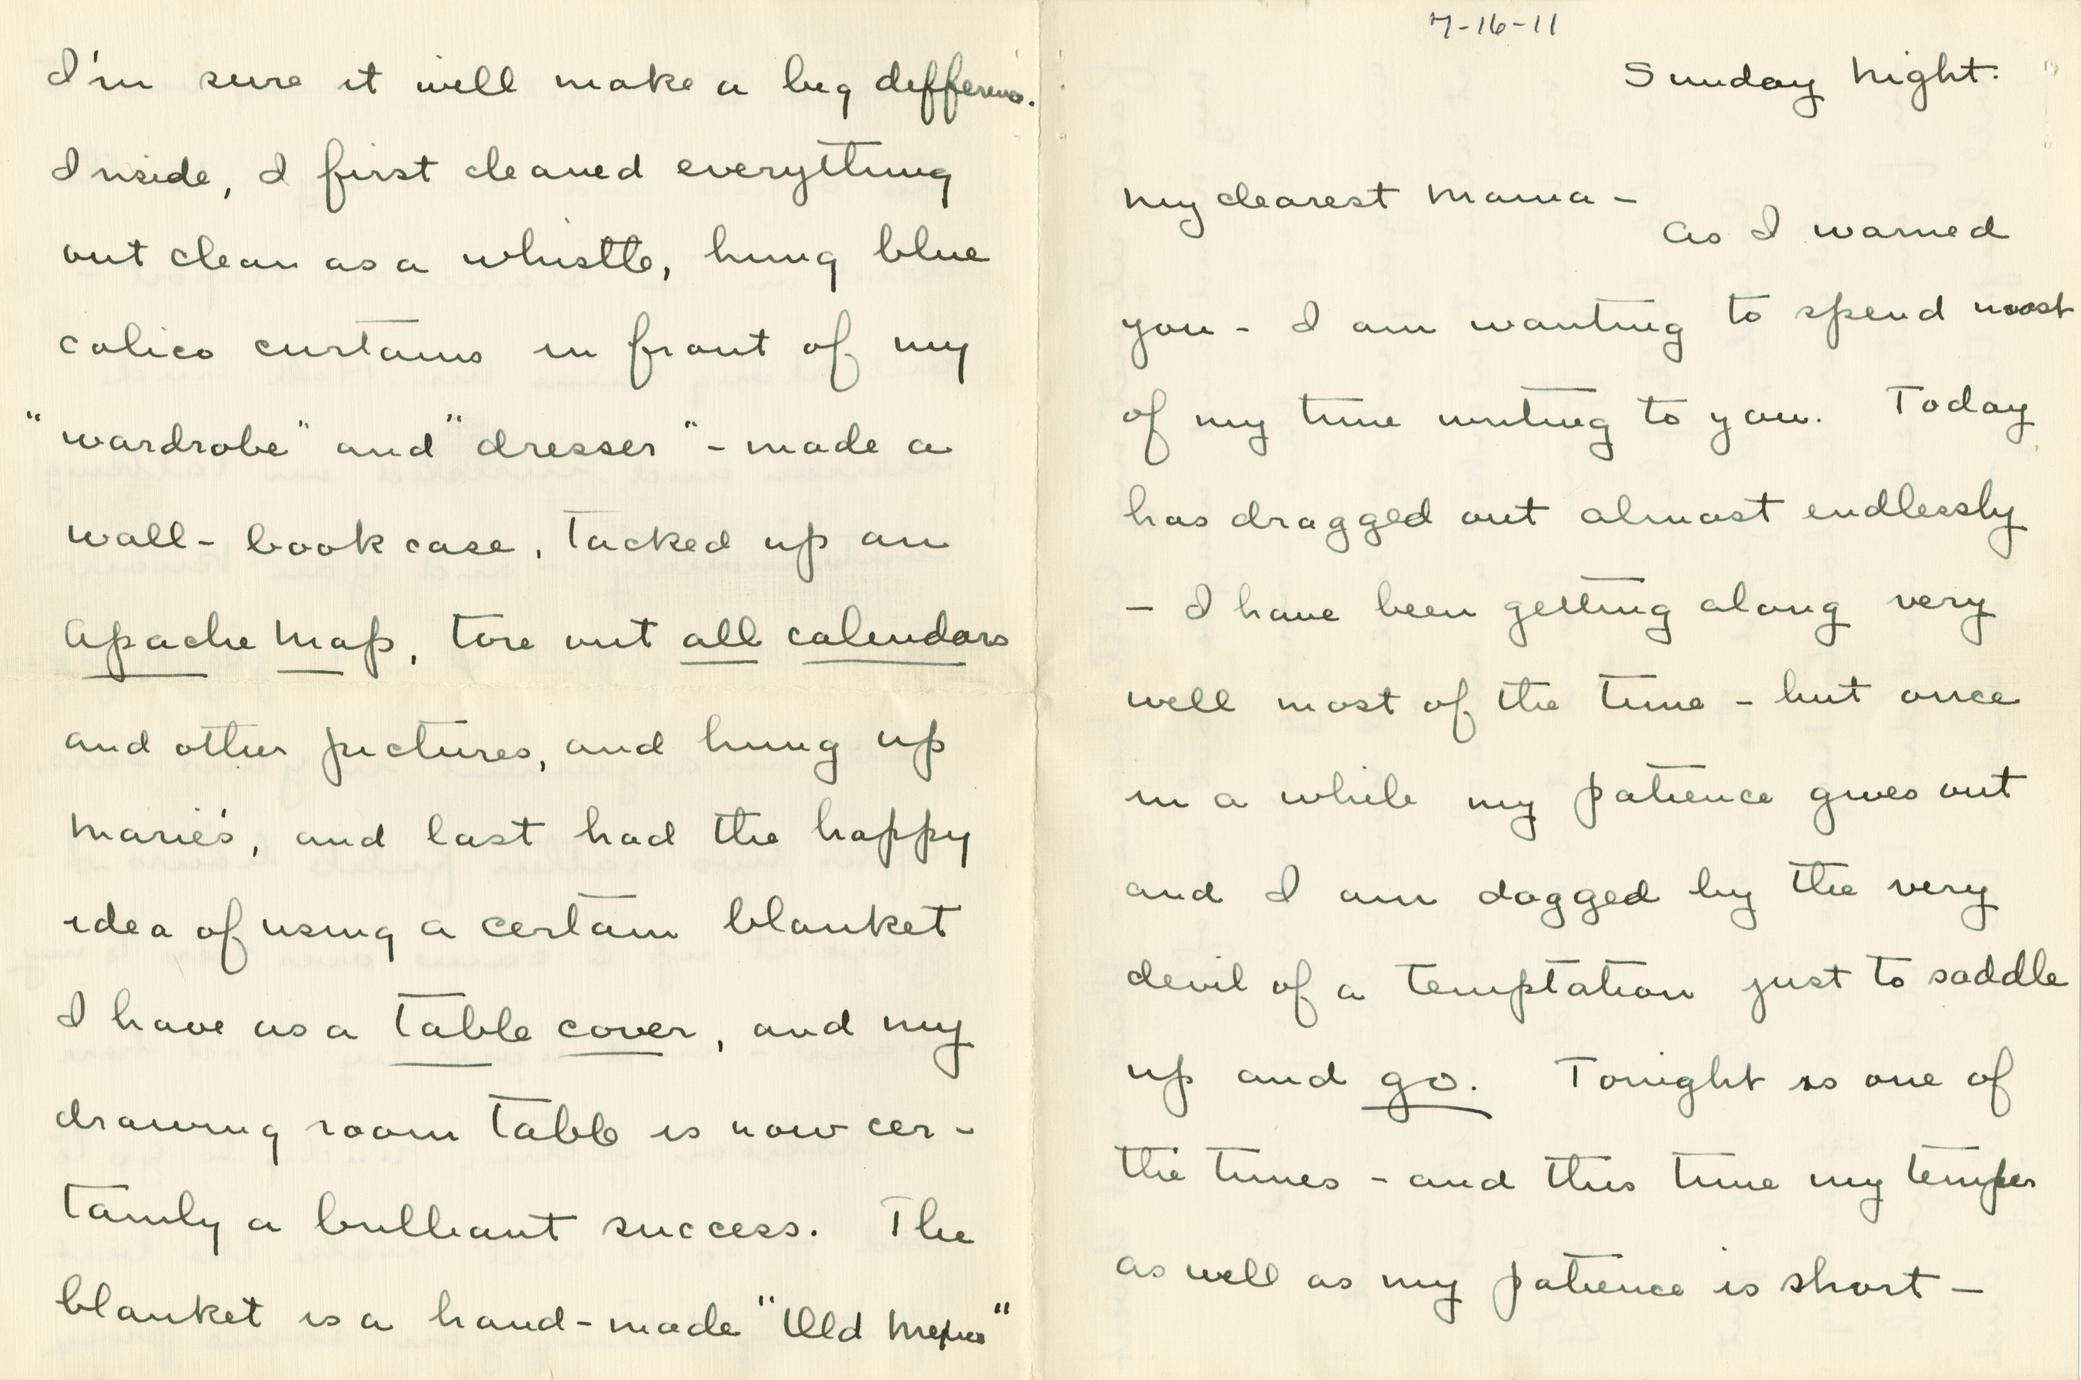 I'm sure it will make a big difference.
Inside, I first cleaned everything
out clean as a whistle, hung blue
calico curtains in front of my
"wardrobe" and "dresser" - made a
wall-book case, tacked up an
Apache Map, tore out all calendars
and other pictures, and hung up
Marie's, and last had the happy
idea of using a certain blanket
I have as a table cover, and my
drawing room table is now cer-
tainly a brilliant success. The
blanket is a hand-made "Old Mexico"
7-16-11
Sunday Night.
My dearest Mama -
As I warned
you - I am wanting to spend most
of my time writing to you. Today
has dragged out almost endlessly
- I have been getting along very
well most of the time - but once
in a while my patience gives out
and I am dogged by the very
devil of a temptation just to saddle
up and go. Tonight is one of
the times - and this time my temper
as well as my patience is short -